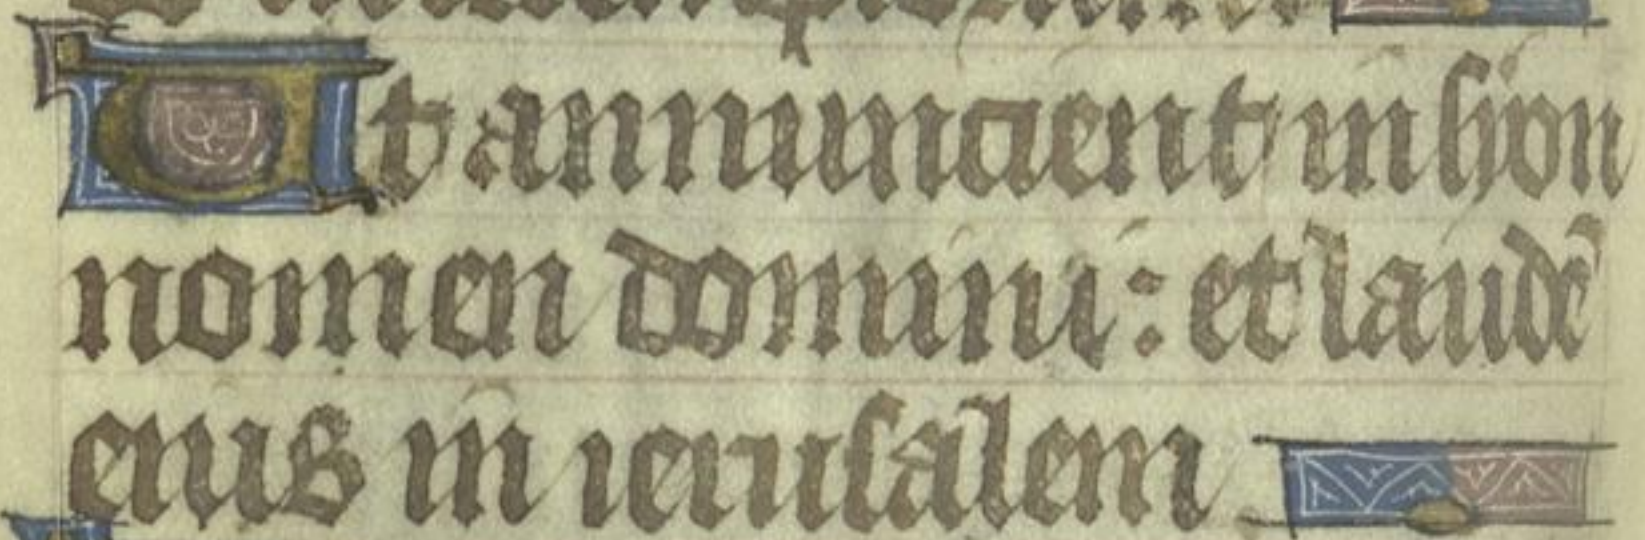 Ut annuncient in syon
nomen domini : et laudē
eius in ierusalem